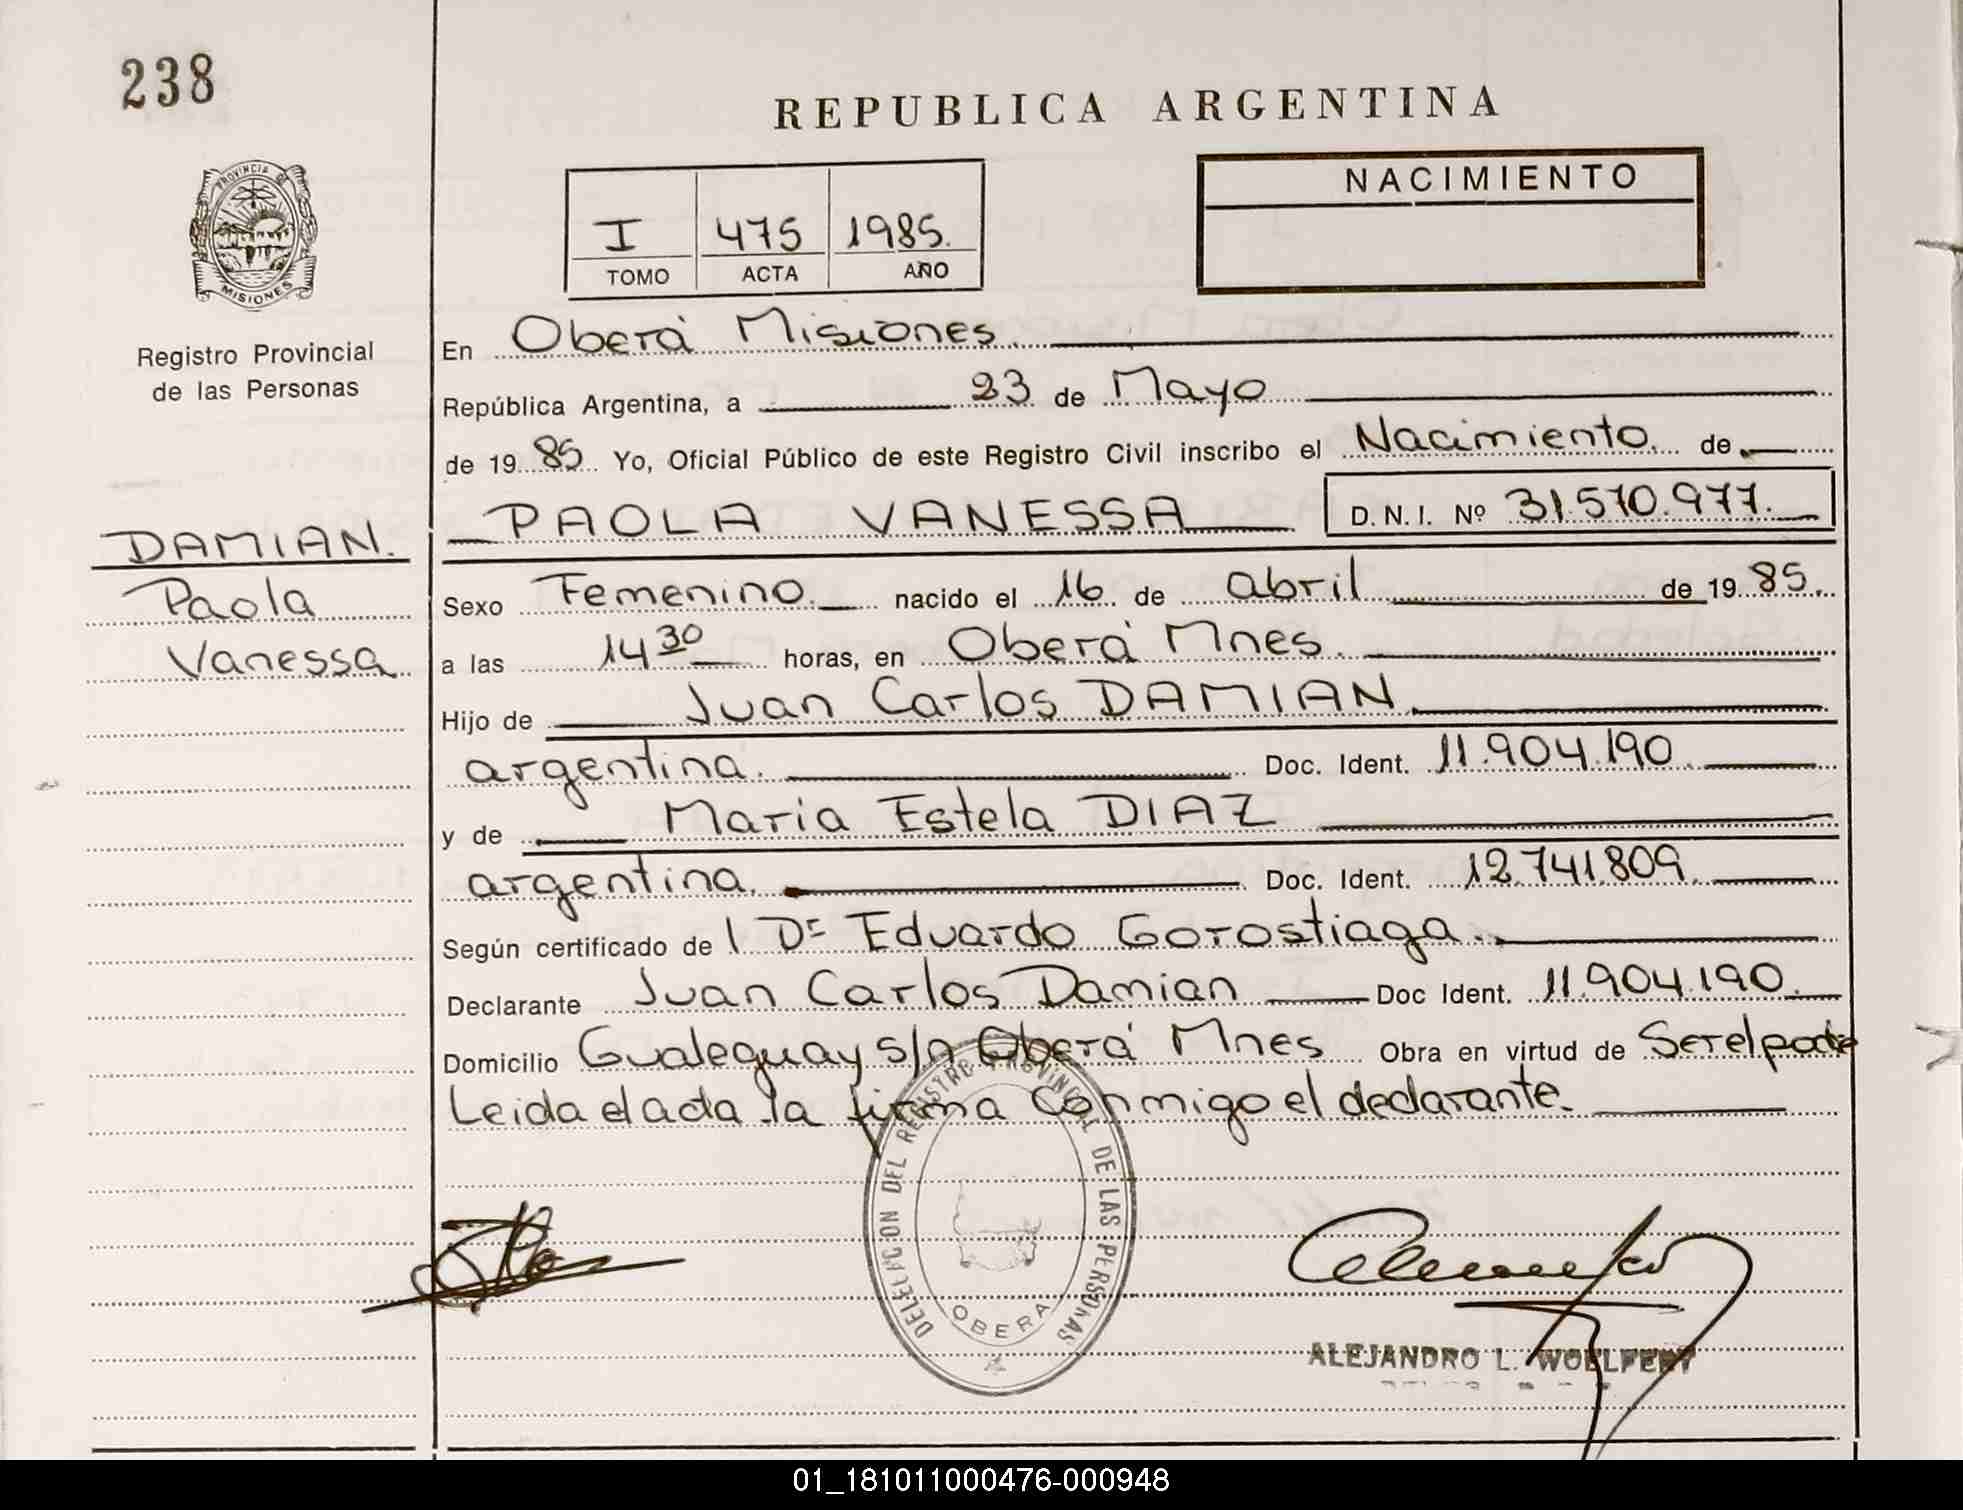 238
REPUBLICA ARGENTINA
PROVINCIA DE
MISIONES
Registro Provincial
de las Personas
I 475 1985.
TOMO ACTA AÑO
NACIMIENTO
En Oberá Misiones.
República Argentina, a 23 de Mayo
de 1985 Yo, Oficial Público de este Registro Civil inscribo el Nacimiento. de
PAOLA VANESSA D.N.I. Nº 31.570.977.
DAMIAN.
Paola
Vanessa
Sexo Femenino. nacido el 16 de abril de 1985.
a las 14 30 horas, en Oberá Mnes.
Hijo de Juan Carlos DAMIAN.
argentina. Doc. Ident. 11.904.190.
y de Maria Estela DIAZ
argentina. Doc. Ident. 12.741.809.
Según certificado de l Dr Eduardo Gorostiaga.
Declarante Juan Carlos Damian Doc Ident. 11.904.190.
Domicilio Gualeguay s/n Oberá Mnes Obra en virtud de Ser el padre
Leida el acta la firma Conmigo el declarante.
DELEGACION DEL REGISTRO PROVINCIAL DE LAS PERSONAS
OBERA
ALEJANDRO L. WOELFERT
01_181011000476-000948